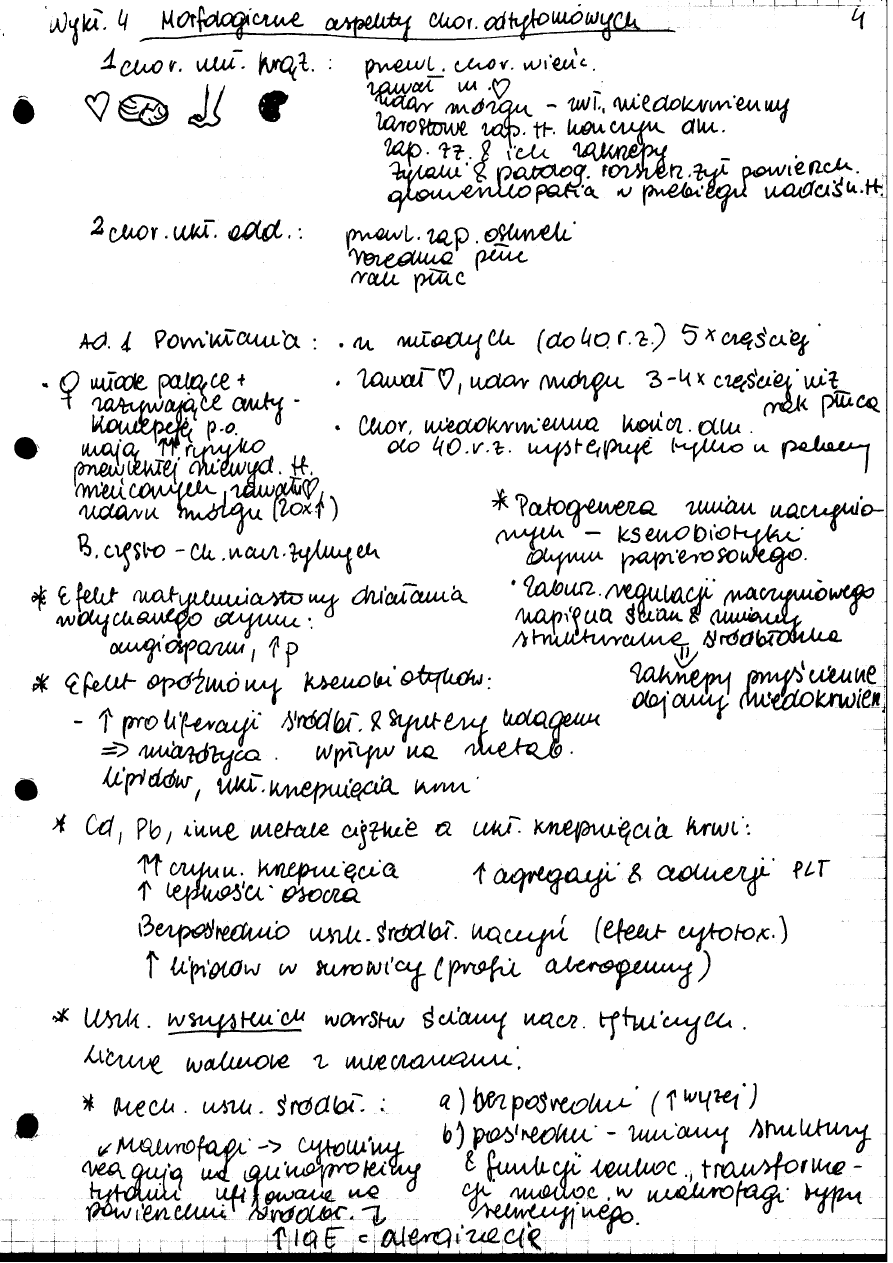 Wykł. 4 Morfologiczne aspekty chor. odtytoniowych 4
1 chor. ukł. krąż.: przewl. chor. wieńc.
zawał m. ♡
udar mózgu - zwł. niedokrwienny
zarostowe zap. tt. kończyn dln.
zap. żż. & ich zakrzepy
żylaki & patolog. rozszerz. żył powierzch.
glomerulopatia w przebiegu nadciśn. tt.
2 chor. ukł. odd.: przewl. zap. oskrzeli
rozedma płuc
rak płuc
Ad. 1 Powikłania: · u młodych (do 40. r. ż.) 5x częściej
· ♀ młode palące +
zażywające anty-
koncepcję p.o.
mają ↑↑ ryzyko
przewlekłej niewyd. tt.
wieńcowych, zawału ♡,
udaru mózgu (20x↑)
B. często - ch. nacz. żylnych
· zawał ♡, udar mózgu 3-4x częściej niż
rak płuca
· Chor. niedokrwienna kończ. dln.
do 40. r. ż. występuje tylko u palaczy
* Patogeneza zmian naczynio-
nych - ksenobiotyki
dymu papierosowego.
· Zaburz. regulacji naczyniowego
napięcia ścian & zmiany
strukturalne śródbłonka
⇓
zakrzepy przyścienne
dają niedokrwien.
* Efekt natychmiastowy działania
wdychanego dymu:
angiospazm, ↑p
* Efekt opóźniony ksenobiotyków:
- ↑ proliferacji śródbł. & syntezy kolagenu
⇒ miażdżyca. wpływ na metab.
lipidów, ukł. krzepnięcia krwi
* Cd, Pb, inne metale ciężkie a ukł. krzepnięcia krwi:
↑↑ czynn. krzepnięcia ↑ agregacji & adhezji PLT
↑ lepkości osocza
Bezpośrednio uszk. śródbł. naczyń (efekt cytotox.)
↑ lipidów w surowicy (profil aterogenny)
* Uszk. wszystkich warstw ściany nacz. tętniczych.
Liczne wakuole z
* Mech. uszk. śródbł.: a) bezpośredni (↑ wyżej)
b) pośredni - zmiany struktury
& funkcji leukoc., transforma-
cji monoc. w makrofagi typu
sekrecyjnego.
↙ Makrofagi -> cytokiny
reagują na glikoproteiny
tytoniu na
powierzchni śródbł. ↴
↑ IgE = alergizacja